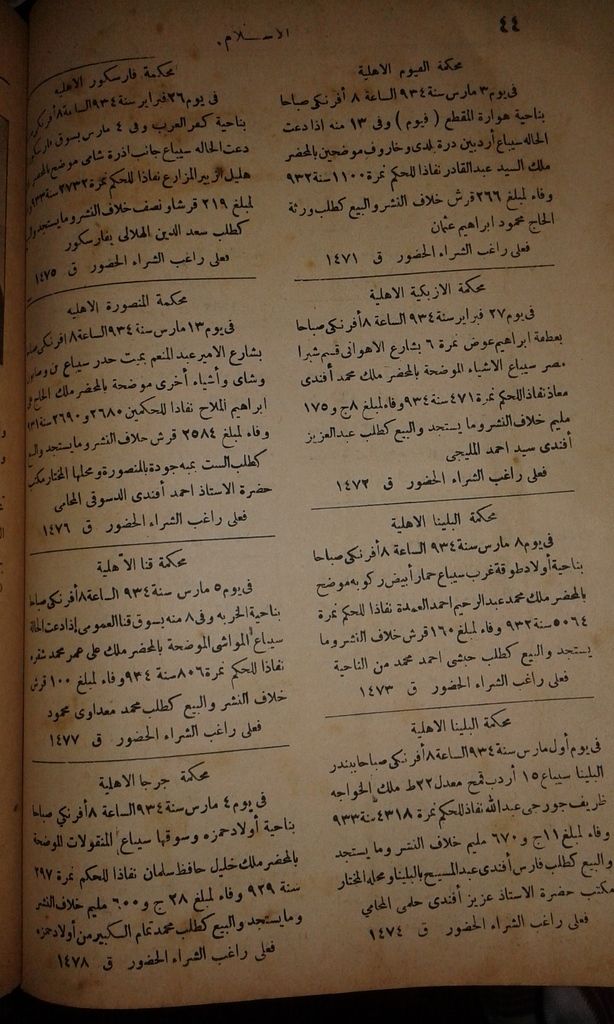 ٤٤
الاسلام.
محكمة الفيوم الاهلية
فى يوم ٣ مارس سنة ٩٣٤ الساعة ٨ أفرنكى صباحا
بناحية هوارة المقطع ( فيوم ) وفى ١٣ منه اذا دعت
الحاله سيباع أردبين درة بلدى وخاروف موضحين بالمحضر
ملك السيد عبدالقادر نفاذا للحكم نمرة ١١٠٠ سنة ٩٣٢
وفاء لمبلغ ٢٦٦ قرش خلاف النشر والبيع كطلب ورثة
الحاج محمود ابراهيم عثمان
فعلى راغب الشراء الحضور ق ١٤٧١
محكمة الازبكية الاهلية
فى يوم ٢٧ فبراير سنة ٩٣٤ الساعة ٨ أفرنكى صباحا
بعطفة ابراهيم عوض نمرة ٦ بشارع الاهوانى قسم شبرا
مصر سيباع الاشياء الموضحة بالمحضر ملك محمد أفندى
معاذ نفاذا للحكم نمرة ٤٧١ سنة ٩٣٤ وفاء لمبلغ ٨ ج و ١٧٥
مليم خلاف النشر وما يستجد والبيع كطلب عبدالعزيز
أفندى سيد احمد المليجى
فعلى راغب الشراء الحضور ق ١٤٧٢
محكمة البلينا الاهلية
فى يوم ٨ مارس سنة ٩٣٤ الساعة ٨ أفرنكى صباحا
بناحية أولاد طوقة غرب سيباع حمار أبيض ركوبه موضح
بالمحضر ملك محمد عبدالرحيم احمد العمدة نفاذا للحكم نمرة
٥٠٦٤ سنة ٩٣٢ وفاء لمبلغ ١٦٠ قرش خلاف النشر وما
يستجد والبيع كطلب حبشى احمد محمد من الناحية
فعلى راغب الشراء الحضور ق ١٤٧٣
محكمة البلينا الاهلية
فى يوم أول مارس سنة ٩٣٤ الساعة ٨ أفرنكى صباحا ببندر
البلينا سيباع ١٥ أردب قمح معدل ٢٢ ط ملك الخواجه
ظريف جورجى عبدالله نفاذا للحكم نمرة ٤٣١٨ سنة ٩٣٣
وفاء لمبلغ ١١ ج و ٦٧٠ مليم خلاف النشر وما يستجد
والبيع كطلب فارس أفندى عبدالمسيح بالبلينا ومحله المختار
مكتب حضرة الاستاذ عزيز أفندى حلمى المحامى
فعلى راغب الشراء الحضور ق ١٤٧٤
محكمة فارسكور الاهليه
فى يوم ٢٦ فبراير سنة ٩٣٤ الساعة ٨ أفرنكى
بناحية كفر العرب وفى ٤ مارس بسوق
دعت الحاله سيباع جانب اذرة شامى موضح بالمحضر
هليل الزيير المزارع نفاذا للحكم نمرة ٢٧٣٢ سنة ٩٣٣
لمبلغ ٢١٩ قرشا ونصف خلاف النشر وما يستجد
كطلب سعد الدين الهلالى بفارسكور
فعلى راغب الشراء الحضور ق ١٤٧٥
محكمة المنصورة الاهليه
فى يوم ١٣ مارس سنة ٩٣٤ الساعة ٨ افرنكى صباحا
بشارع الامير عبد المنعم بميت حدر سيباع بن وصابون
وشاى وأشياء أخرى موضحة بالمحضر ملك الحاج
ابراهيم الملاح نفاذا للحكمين ٢٦٨٠ و ٢٦٩٠ سنة ٩٣١
وفاء لمبلغ ٢٥٨٤ قرش خلاف النشر وما يستجد
كطلب الست بمبه جودة بالمنصورة ومحلها المختار مكتب
حضرة الاستاذ احمد أفندى الدسوقى المحامى
فعلى راغب الشراء الحضور ق ١٤٧٦
محكمة قنا الاهلية
فى يوم ٥ مارس سنة ٩٣٤ الساعة ٨ أفرنكى صباحا
بناحية الخربه وفى ٨ منه بسوق قنا العمومى إذا دعت الحالة
سيباع المواشى الموضحة بالمحضر ملك على عمر محمد شقره
نفاذا للحكم نمرة ٨٠٦ سنة ٩٣٤ وفاء لمبلغ ١٠٠ قرش
خلاف النشر والبيع كطلب محمد معداوى محمود
فعلى راغب الشراء الحضور ق ١٤٧٧
محكمة جرجا الاهلية
فى يوم ٤ مارس سنة ٩٣٤ الساعة ٨ أفرنكي صباحا
بناحية أولاد حمزه وسوقها سيباع المنقولات الموضحة
بالمحضر ملك خليل حافظ سلمان نفاذا للحكم نمرة ٢٩٧
سنة ٩٢٩ وفاء لمبلغ ٢٨ ج و ٦٠٠ مليم خلاف النشر
وما يستجد والبيع كطلب محمد تمام الكبير من أولاد حمزه
فعلى راغب الشراء الحضور ق ١٤٧٨